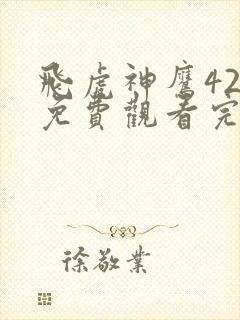 飛虎神鷹42
免費觀看完
徐敬業